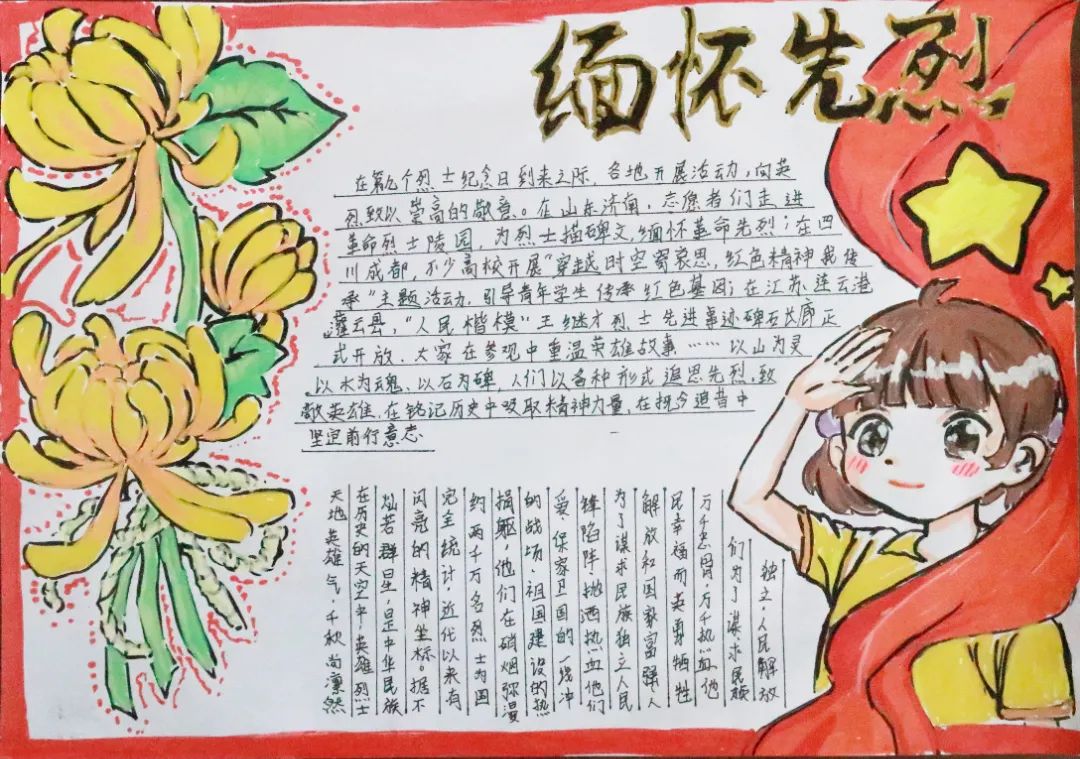 缅怀先烈
在第九个烈士纪念日到来之际，各地开展活动，向英
烈致以崇高的敬意。在山东济南，志愿者们走进
革命烈士陵园，为烈士描碑文，缅怀革命先烈；在四
川成都，不少高校开展"穿越时空寄哀思，红色精神我传
承"主题活动，引导青年学生传承红色基因；在江苏连云港
灌云县，"人民楷模"王继才烈士先进事迹碑石长廊正
式开放，大家在参观中重温英雄故事……以山为灵
以水为魂、以石为碑，人们以各种形式追思先烈，致
敬英雄，在铭记历史中吸取精神力量，在抚今追昔中
坚定前行意志
天地英雄气，千秋尚凛然
在历史的天空中，英雄烈士
灿若群星，是中华民族
闪亮的精神坐标。据不
完全统计，近代以来有
约两千万名烈士为国
捐躯，他们在硝烟弥漫
的战场，祖国建设的热
爱、保家卫国的一线冲
锋陷阵，抛洒热血他们
为了谋求民族独立人民
解放和国家富强、人
民幸福而英勇牺牲
万千忠骨，万千热血他
们为了谋求民族
独立，人民解放